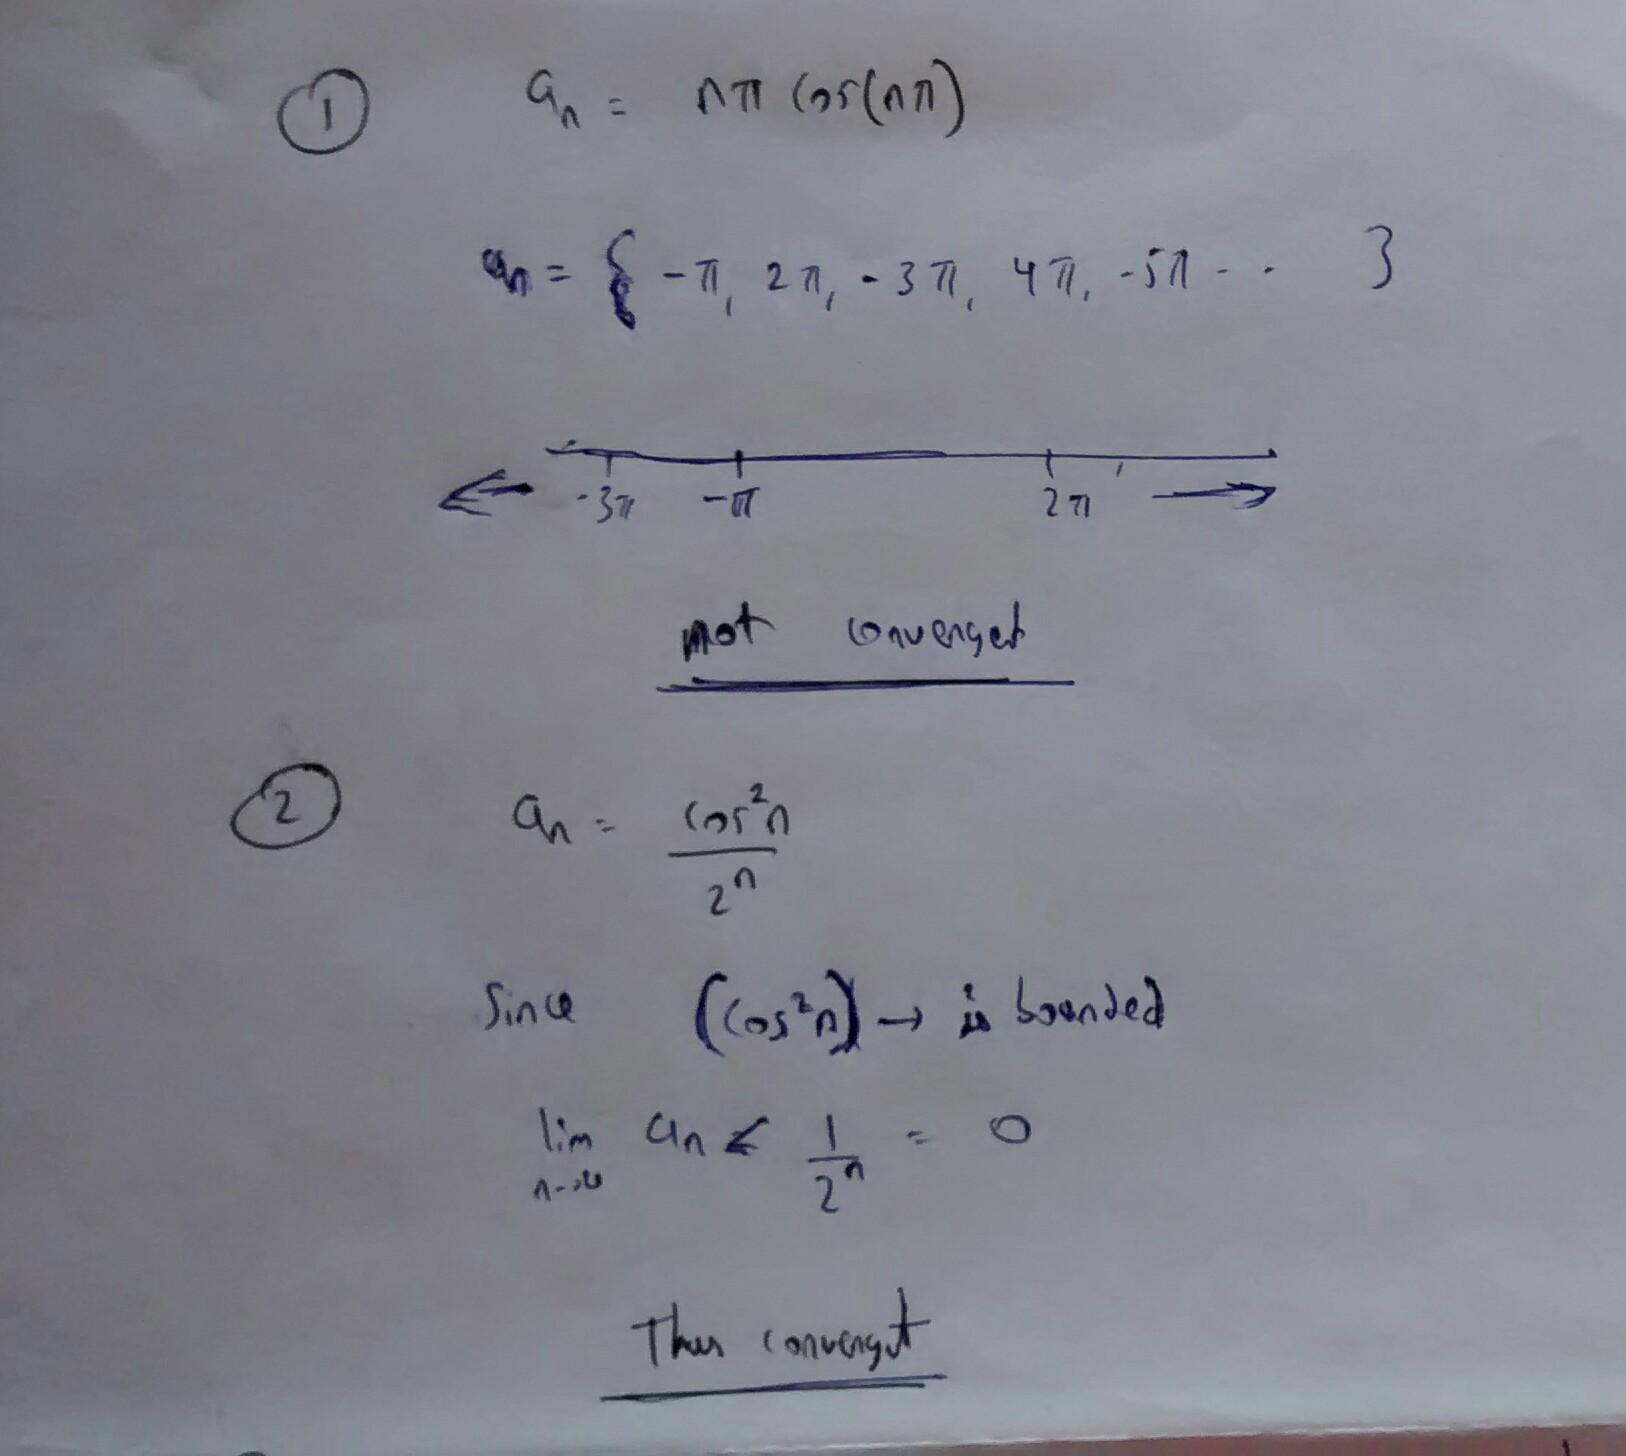 1
aₙ = nπ cos(nπ)
aₙ = { -π, 2π, -3π, 4π, -5π - - }
-3π -π 2π
not convergent
2
aₙ = cos²n / 2ⁿ
Since (cos²n) → is bounded
lim n→∞ aₙ ≤ 1 / 2ⁿ = 0
Thus convergent